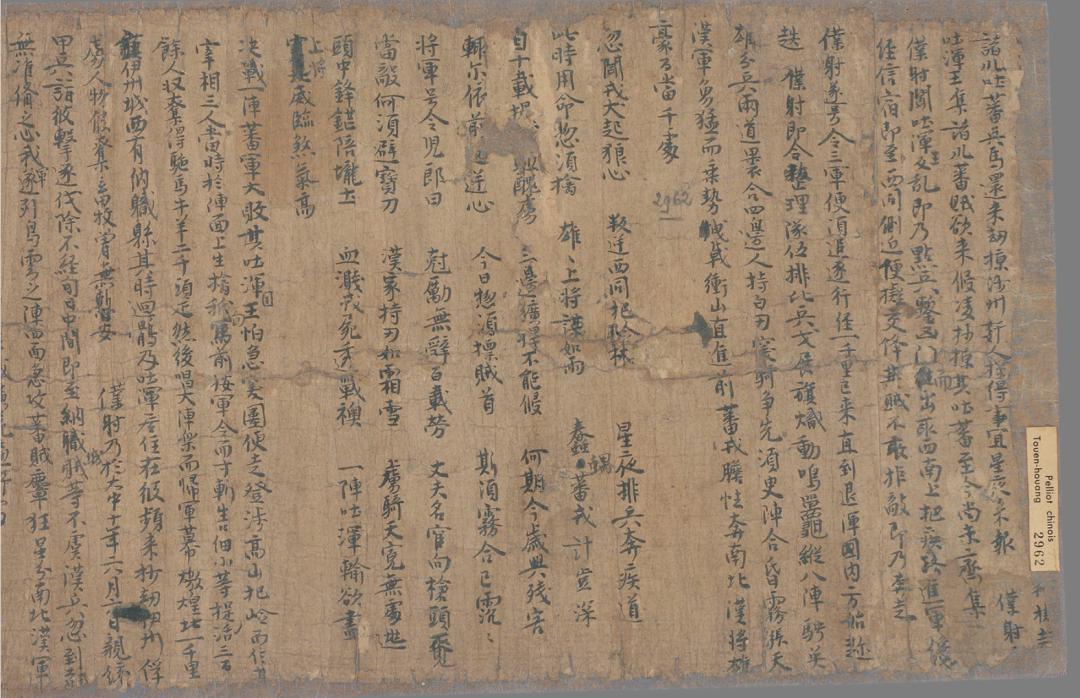 諸川吐蕃兵馬還來劫掠沙州奸人探得事宜星夜來報僕射
吐渾王集諸川蕃賊欲來侵凌抄掠其吐蕃至今尚未齊集
僕射聞吐渾王反亂即乃點兵鏧凶門而出取西南上把疾路進軍纔
經信宿即至西同側近便擬交鋒其賊不敢拒敵即乃奔走
僕射遂号令三軍便須追逐行經一千里已來直到退渾國內方始趁
迭 僕射即令整理隊伍排比兵戈展旗幟動鳴鼉縱八陣騁英
雄分兵兩道裹合四邊人持白刃突騎爭先須臾陣合昏霧漲天
漢軍勇猛而乘勢拽戟衝山直進前 蕃戎膽怯奔南北 漢將雄
豪百當千處
2962
忽聞戎犬起狼心 叛逆西同把險林 星夜排兵奔疾道
此時用命惣須擒 雄〻上將謀如雨 蠢愚蕃戎計豈深
自十載提戈駈醜虜 三邊獷悍不能侵 何期今歲興殘害
輒尔依前起逆心 今日惣須摽賊首 斯須霧合已沉〻
將軍号令兒郎曰 尅勵無辭百載勞 丈夫名宦向槍頭覓
當敵何須避寶刀 漢家持刃如霜雪 虜騎天寬無處逃
頭中鋒鋩陪壠土 血濺戎死透戰襖 一陣吐渾輸欲盡
上將威臨煞氣高
決戰一陣蕃軍大敗其吐渾王怕急突圍便走登涉高山把嶮而住其
宰相三人當時於陣面上生擒秖向馬前按軍令而寸斬生口細小等捉活三百
餘人收奪得駞馬牛羊二千頭疋然後唱大陣樂而歸軍幕燉煌北一千里
鎮伊州城西有納職縣其時迴鶻及吐渾居住在彼頻來抄劫伊州俘
虜人物侵奪畜牧曾無暫安 僕射乃於大中十年六月六日親統
甲兵詣彼擊逐伐除不經旬日中間即至納職城賊等不虞漢兵忽到都
無准備之心我軍遂列烏雲之陣四面急攻蕃賊麞狂星分南北漢軍
Pelliot chinois
Touen-houang
2962